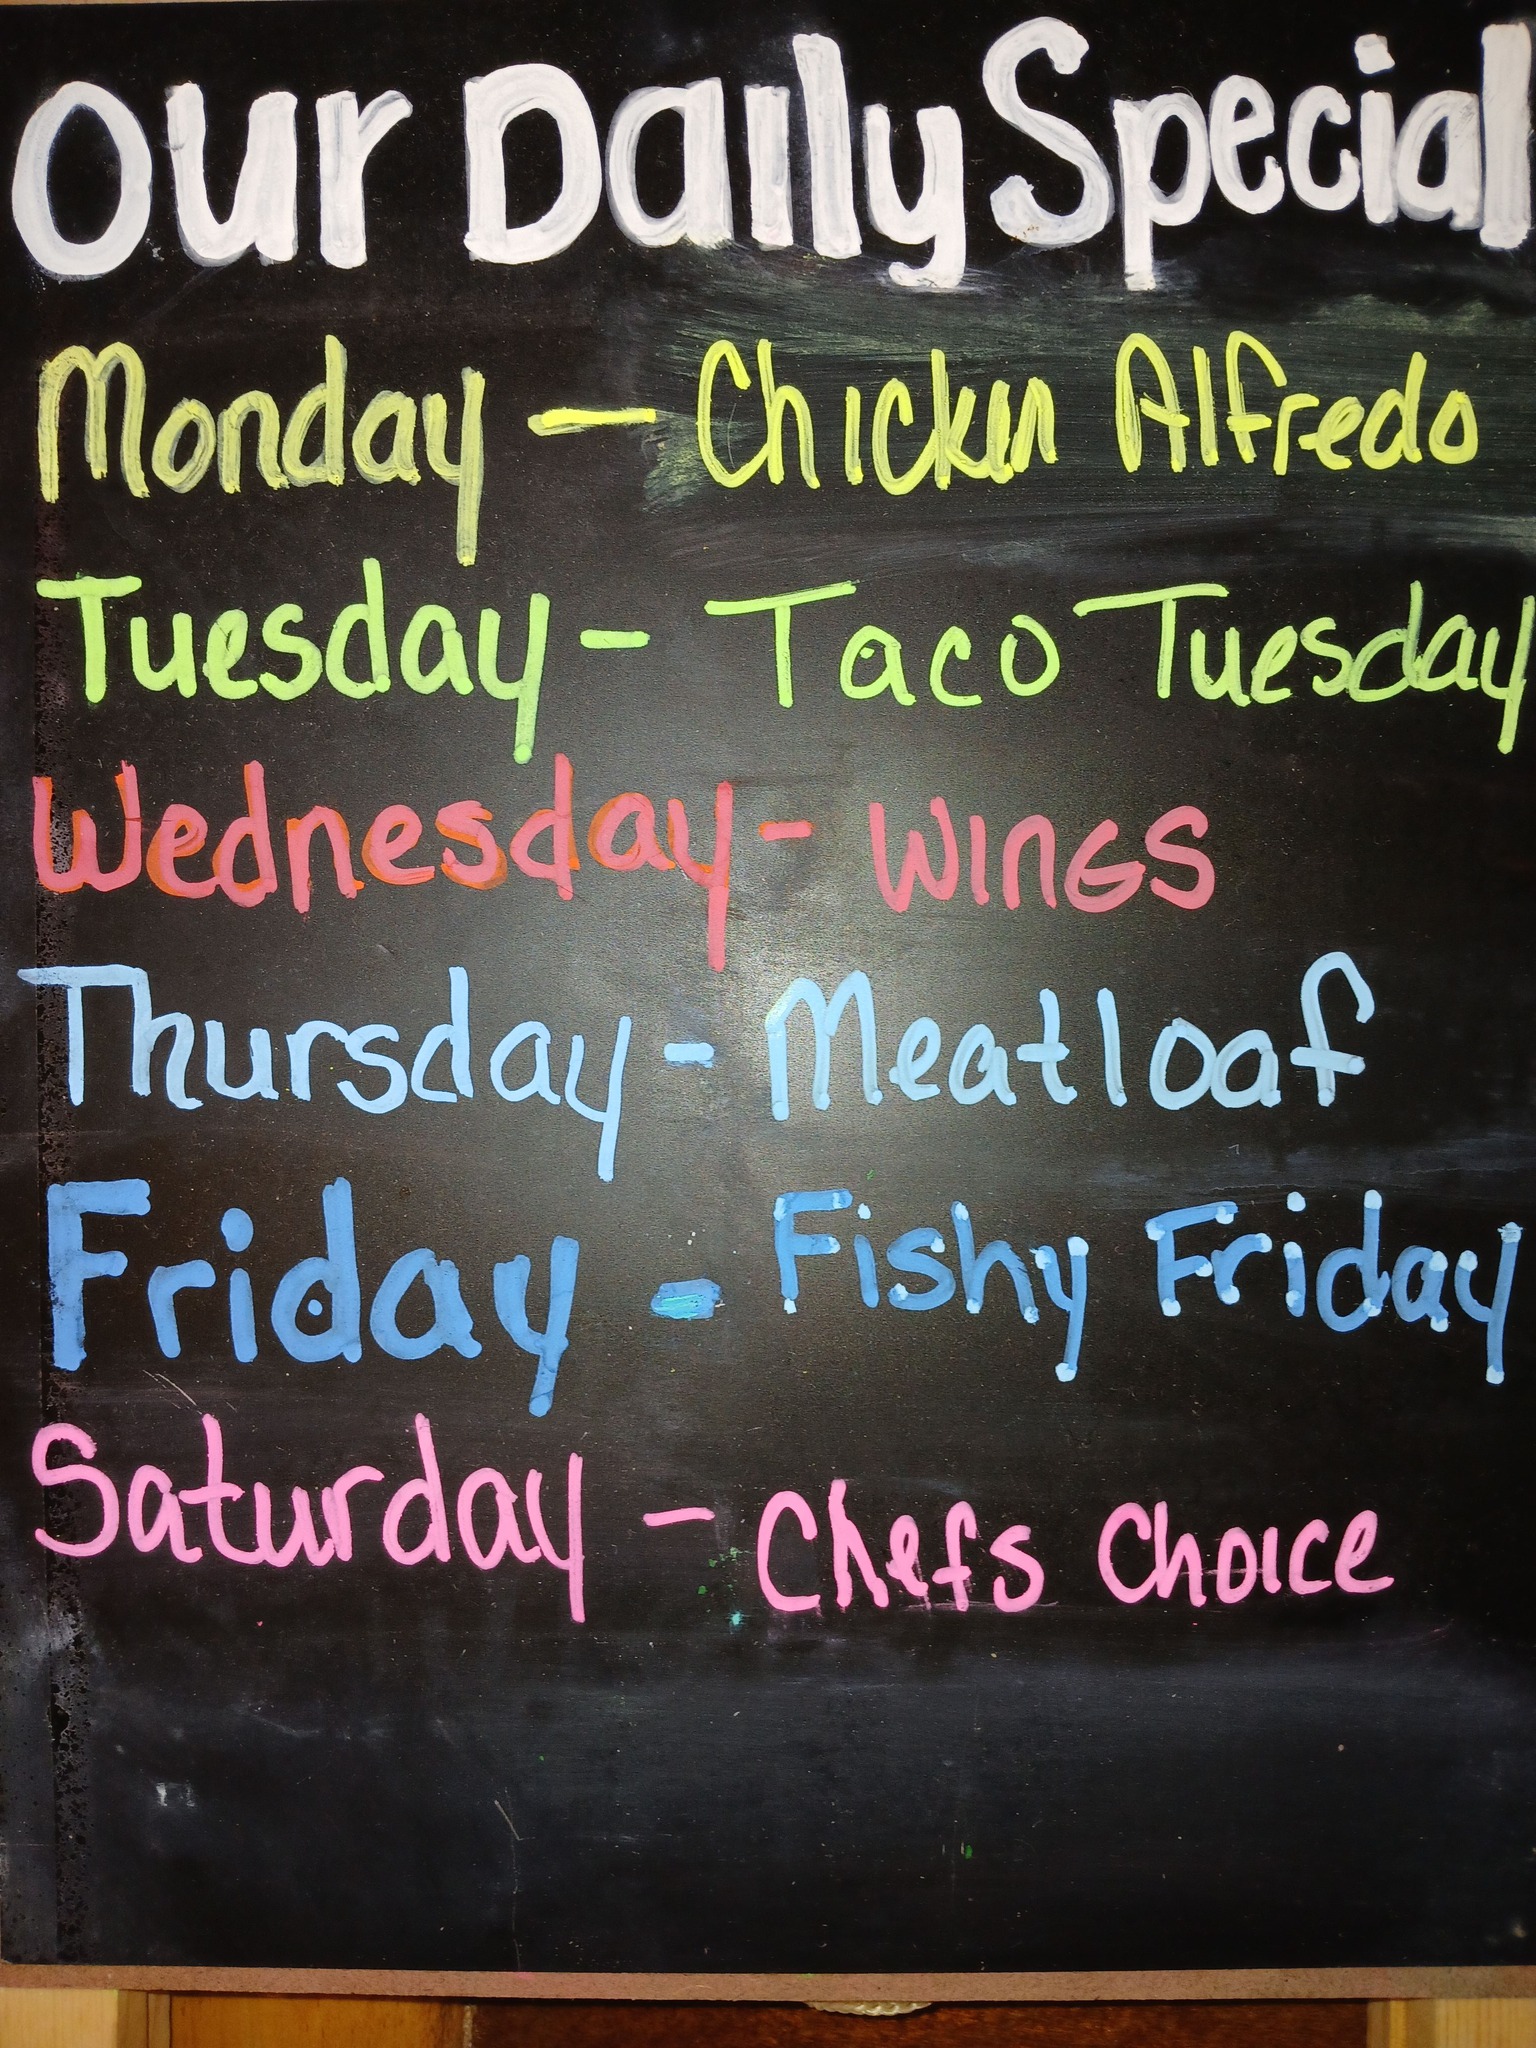 Our Daily Special
Monday — Chicken Alfredo
Tuesday - Taco Tuesday
Wednesday - WINGS
Thursday - Meatloaf
Friday - Fishy Friday
Saturday - Chefs Choice